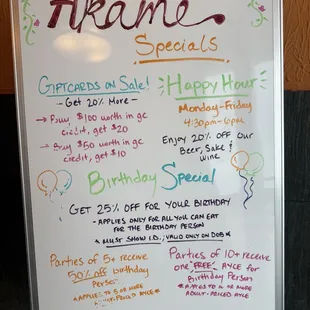 Akame
Specials
Giftcards on Sale!
- Get 20% More -
→ Buy $100 worth in gc
credit, get $20
→ Buy $50 worth in gc
credit, get $10
Happy Hour
Monday-Friday
4:30pm-6pm
Enjoy 20% off our
Beer, Sake &
Wine
Birthday Special
Get 25% off for your birthday
- Applies only for all you can eat
for the birthday person
* Must show I.D., valid only on DOB *
Parties of 5+ receive
50% off birthday
person
* Applies to 5 or more
-priced AYCE *
Parties of 10+ receive
one "FREE" AYCE for
Birthday Person
* Applies to 10 or more
adult-priced AYCE